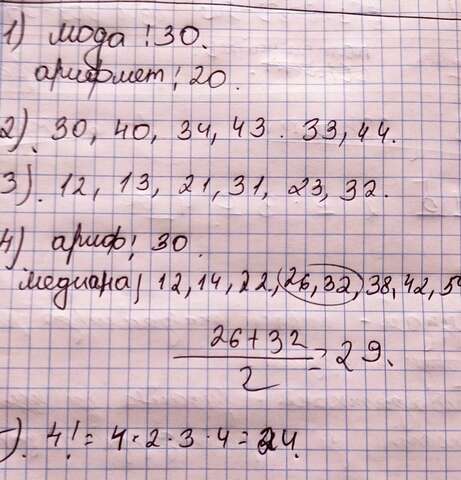 1) мода: 30.
арифмет: 20.
2). 30, 40, 34, 43. 33, 44.
3). 12, 13, 21, 31, 23, 32.
4) ариф: 30.
медиана: 12, 14, 22, 26, 32, 38, 42, 5
26+32
/ 2 = 29.
). 4! = 4·2·3·4 = 24.